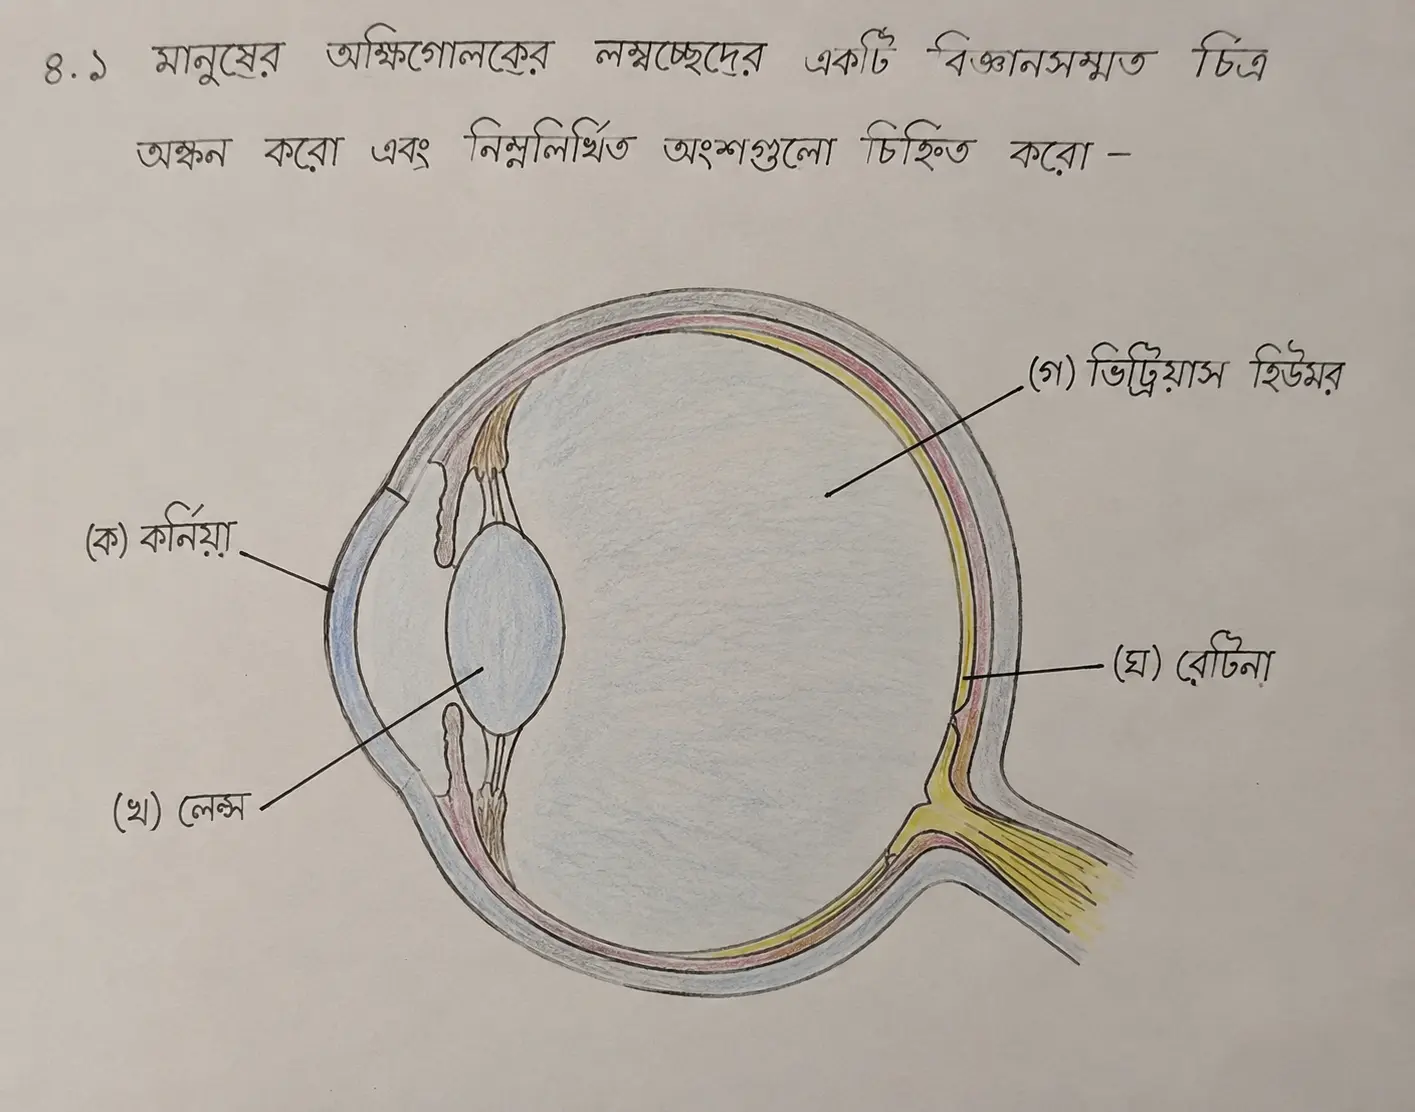 ৪.১ মানুষের অক্ষিগোলকের লম্বচ্ছেদের একটি বিজ্ঞানসম্মত চিত্র
অঙ্কন করো এবং নিম্নলিখিত অংশগুলো চিহ্নিত করো –
(গ) ভিট্রিয়াস হিউমর
(ক) কর্নিয়া
(ঘ) রেটিনা
(খ) লেন্স